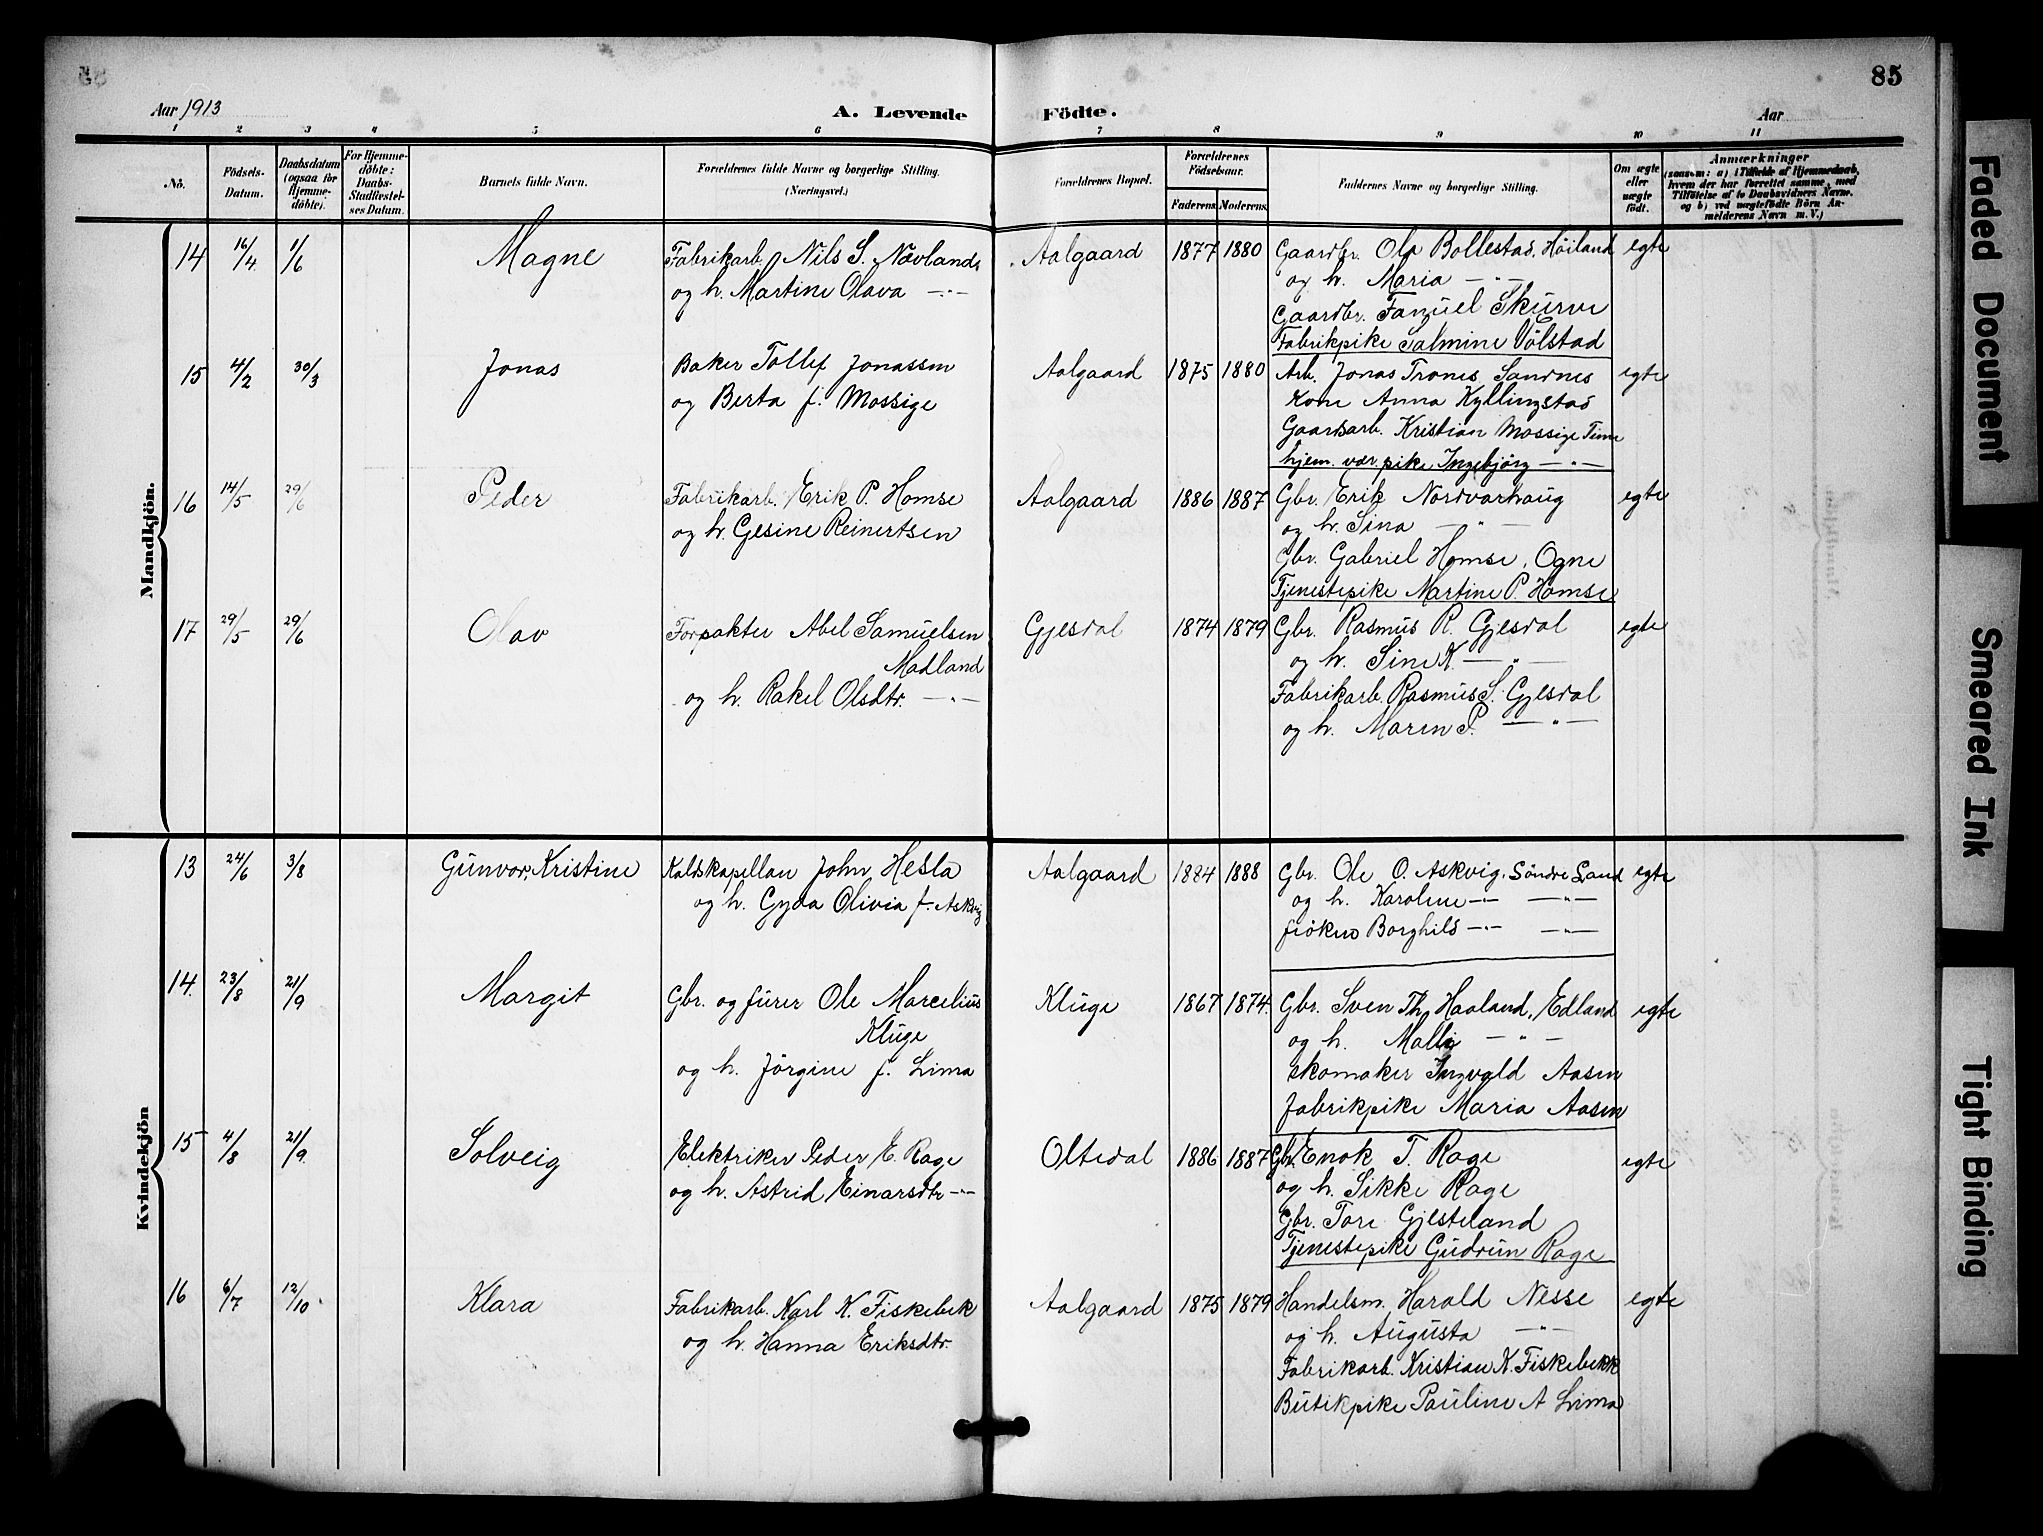 85
Aar 1913
A. Levende Födte.
Aar
1 2 3 4 5 6 7 8 9 10 11
No.
Födsels-Datum.
Daabsdatum (ogsaa for Hjemme-döbte).
For Hjemme-döbte: Daabs-Stadfæstel-ses Datum.
Barnets fulde Navn.
Forældrenes fulde Navne og borgerlige Stilling. (Næringsvei.)
Forældrenes Bopæl.
Forældrenes Födselsaar.
Faderens. Moderens.
Faddernes Navne og borgerlige Stilling.
Om ægte eller uægte födt.
Anmærkninger
(saasom: a) i Tilfælde af Hjemmedaab, hvem der har forrettet samme, med Tilföielse af to Daabsvidners Navne, og b) ved uægtefödte Börn An-melderens Navn m. V.)
Mandkjön.
14 16/4 1/6 Magne Fabrikarb. Nils S. Nævland Aalgaard 1877 1880 Gaardbr. Ola Bollestad, Höiland egte
og h. Martine Olava —"— og h. Maria —"—
Gaardbr. Fanuel Skurve
Fabrikpike Salmine Völstad
15 4/2 30/3 Jonas Baker Tollef Jonassen Aalgaard 1875 1880 Arb. Jonas Trones Sandnes egte
og Berta f. Mossige Kone Anna Kyllingstad
Gaardarb. Kristian Mossige Time
hjem. vær. pike Ingebjörg —"—
16 14/5 29/6 Peder Fabrikarb. Erik P. Homse Aalgaard 1886 1887 Gbr. Erik Nordvarhaug egte
og h. Gesine Reinertsen og h. Sina —"—
Gbr. Gabriel Homse, Ogne
Tjenestepike Martine P. Homse
17 29/5 29/6 Olav Forpakter Abel Samuelsen Gjesdal 1874 1879 Gbr. Rasmus R. Gjesdal egte
Madland og h. Sine K. —"—
og h. Rakel Olsdtr. —"— Fabrikarb. Rasmus S. Gjesdal
og h. Maren P. —"—
Kvindekjön
13 24/6 3/8 Gunvor, Kristine Kaldskapellan John Hesla Aalgaard 1884 1888 Gbr. Ole O. Askvig, Söndre Land egte
og h. Gyda Olivia f. Askvig og h. Karoline —"— —"—
fröken Borghild —"— —"—
14. 23/8 21/9 Margit Gbr. og furer Ole Marcelius Kluge 1867 1874. Gbr. Sven Th. Haaland, Edland egte
Kluge og h. Malli —"—
og h. Jörgine f. Lima skomaker Ingvald Aasen
fabrikpike Maria Aasen
15 4/8 21/9 Solveig Elektriker Peder E. Rage Oltedal 1886 1887 Gbr. Enok T. Rage egte
og h. Astrid Einarsdtr —"— og h. Sikke Rage
Gbr. Tore Gjesteland
Tjenestepike Gudrun Rage
16 6/7 12/10. Klara Fabrikarb. Karl K. Fiskebek Aalgaard 1875 1879 Handelsm. Harald Nesse egte
og h. Hanna Eriksdtr. og h. Augusta —"—
Fabrikarb. Kristian K. Fiskebekk
Butikpike Pauline A Lima
Faded Document
Smeared Ink
Tight Binding